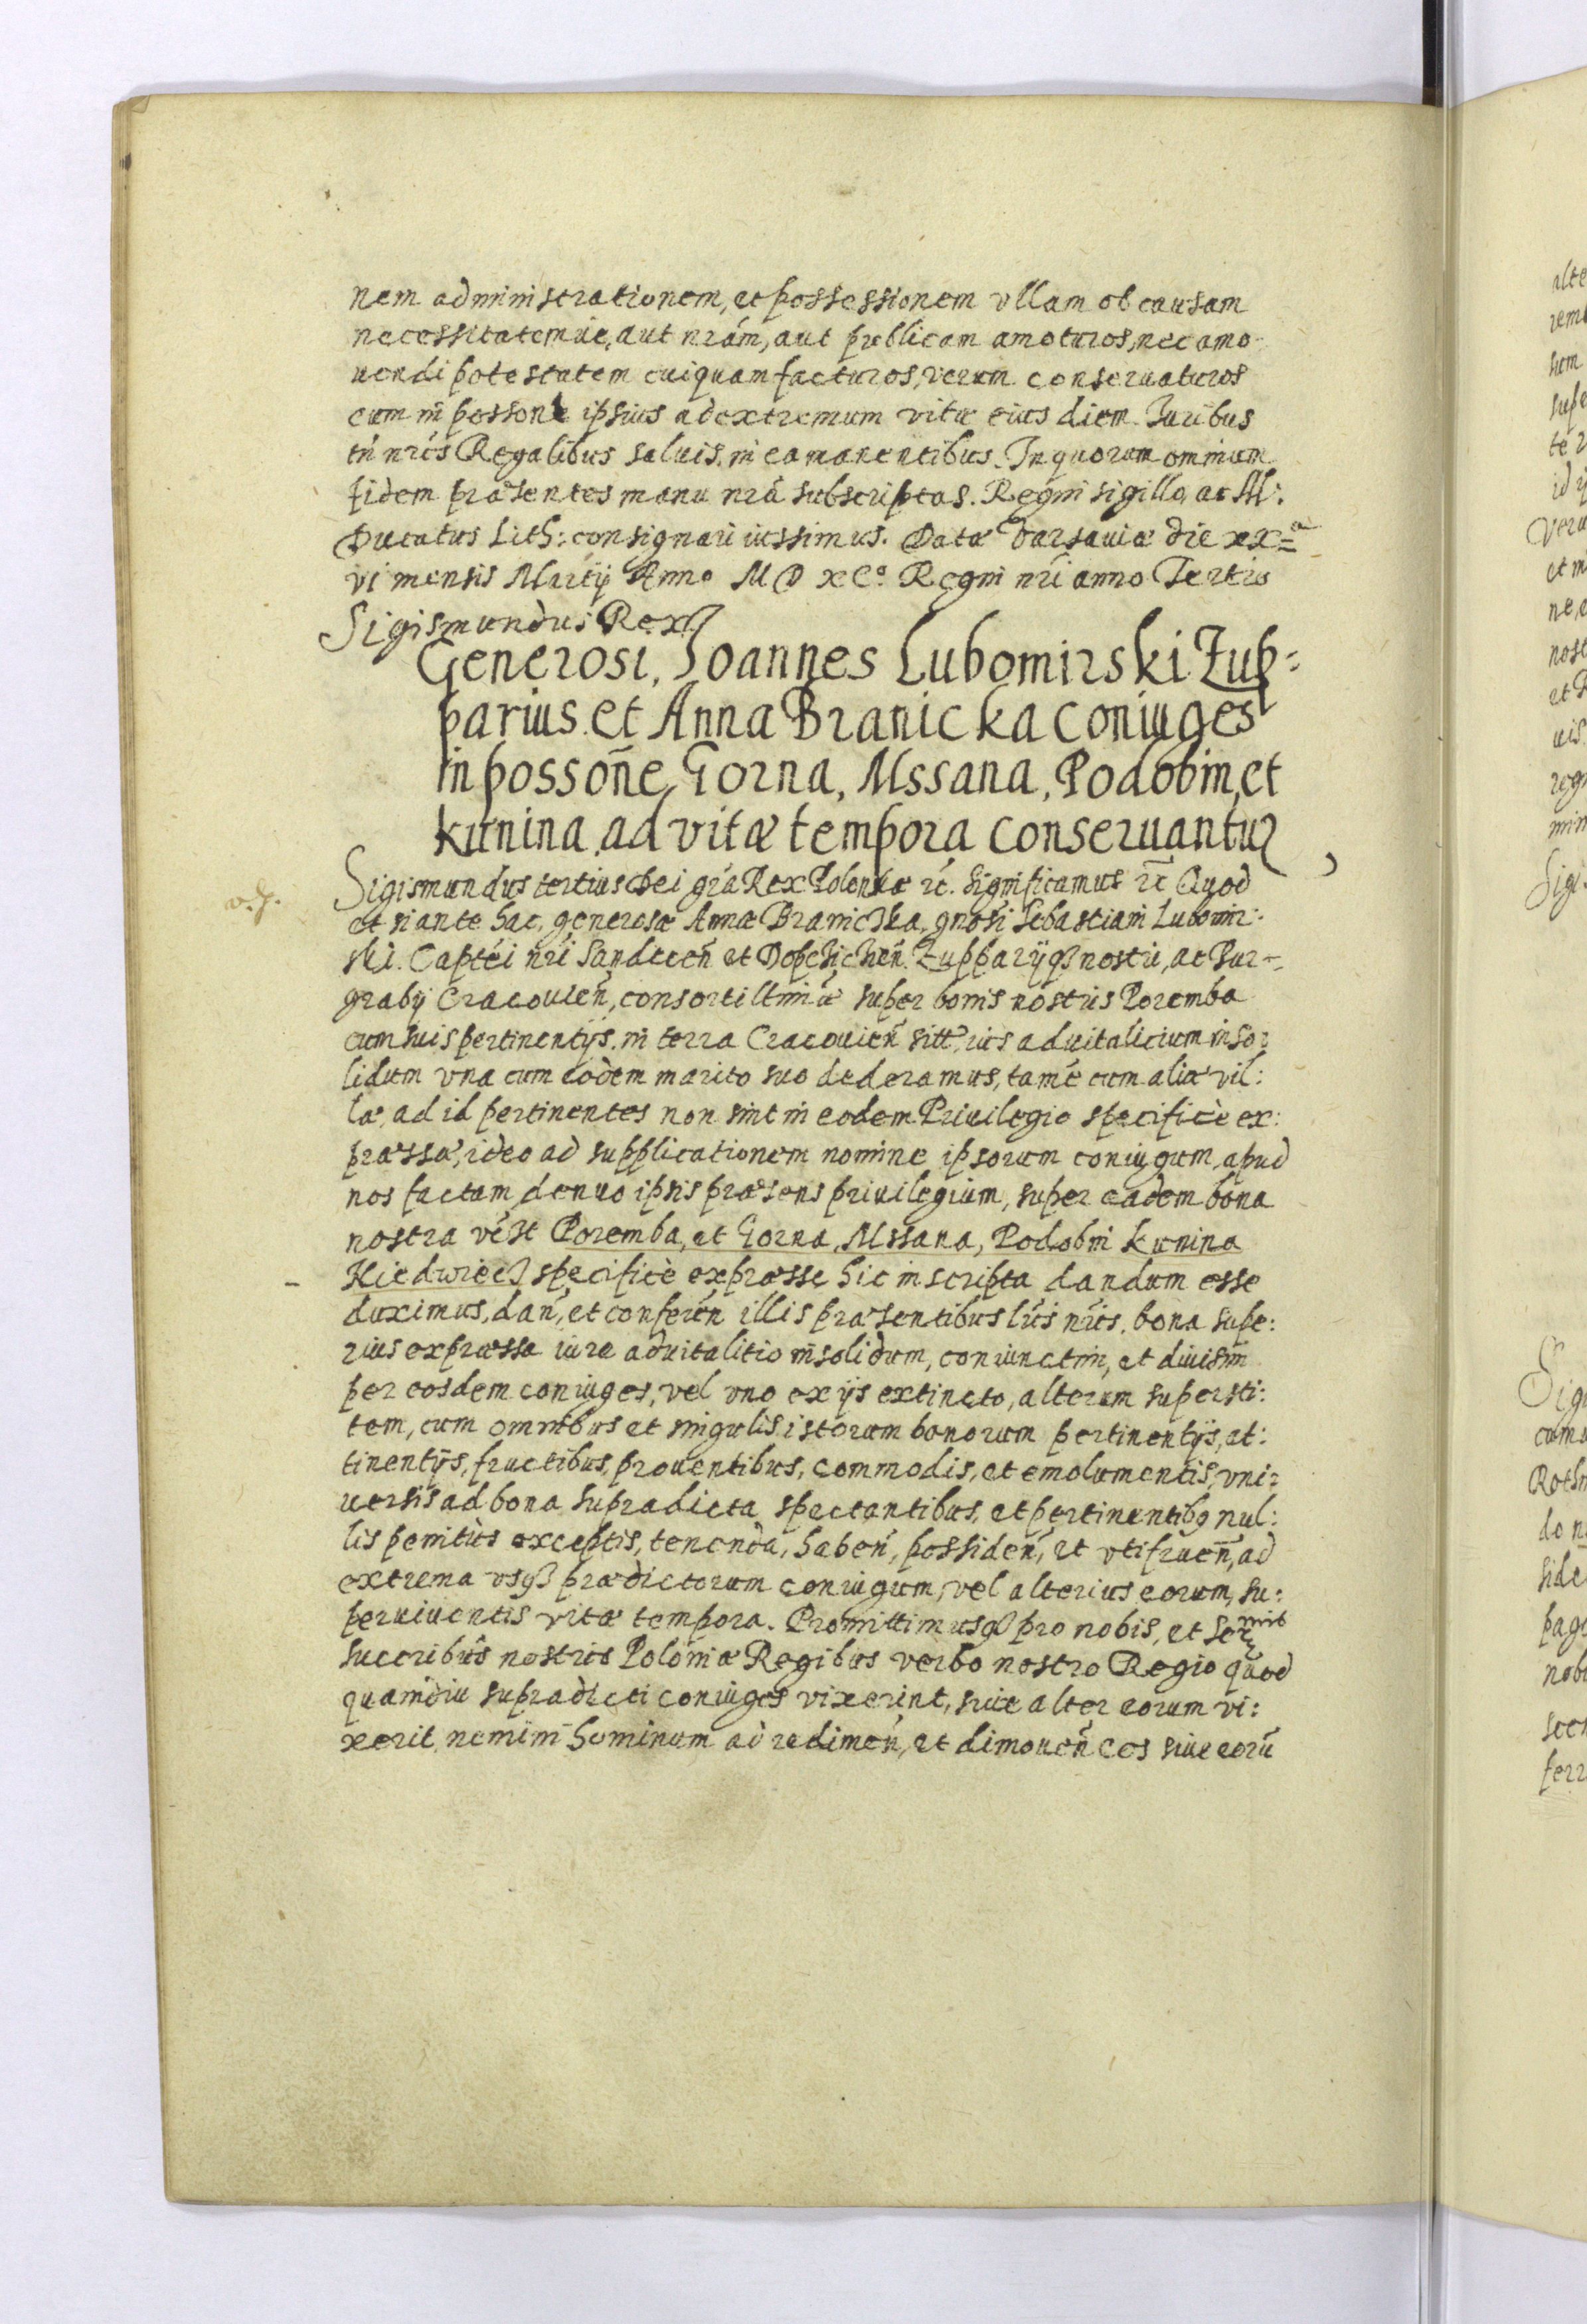 nem administrationem, et possessionem ullam ob causam
necessitatemue, aut nrám, aut publicam amoturos, nec amo
uendi potestatem cuiquam facturos, verum conseruaturos
eum in possone ipsius ad extremum vitæ eius diem. Iuribus
tń nrís Regalibus saluis, in ea manentibus. In quorum omnium
fidem præsentes manu nrá subscriptas. Regni sigillo, ac M:
Ducatus Lith: consignari iussimus. Datæ Varsauiæ die xx=
vi mensis Martij Anno M D xCº Regni nrí anno Tertio
Sigismundus Rex
Generosi, Ioannes Lubomirski Zup=
parius et Anna Branicka coniuges
in possoñe Gorna, Mssana, Podobin, et
kunina ad vitæ tempora conseruantur
Sigismundus tertius Dei grá Rex Poloniæ rć. Significamus rć Quod
et si ante hac, generosæ Annæ Branicka, gnosi Sebastiani Lubomir:
ski. Captéi nrí Sandeceń et Dopchicheń. Zupparijqȝ nostri, ac Bur=
grabij Cracouień, consorti ltmiæ super bonis nostris Poremba
cum suis pertinentijs, in terra Cracouień sitt, ius aduitalicium inso:
lidum vna cum eodem marito suo dederamus, tamé cum aliæ vil:
læ, ad id pertinentes non sint in eodem Priuilegio specificè ex:
præssæ, ideo ad supplicationem nomine ipsorum coniugum, apud
nos factam denuo ipsis præsens priuilegium, super eadem bona
nostra vést Poremba, et Gorna, Mssana, Podobni kunina
Niedwiecȝ specificè expræsse hic inscripta dandum esse
duximus, dań, et conferéń illis præsentibus lrís nrís. bona supe:
rius expræssa iure aduitalitio insolidum, coniunctim, et diuisim
per eosdem coniuges, vel vno ex ijs extincto, alterum supersti:
tem, cum omnibus et singulis istorum bonorum pertinentijs, at:
tinentijs, fructibus, prouentibus, commodis, et emolumentis, vni:
uersis ad bona supradicta spectantibus, et pertinentibȝ nul:
lis penitùs exceptis, tenenda, habeń, possideń, et vtifrueń, ad
extrema vsqȝ prædictorum coniugum, vel alterius eorum, su:
peruiuentis vitæ tempora. Promittimusqȝ pro nobis, et Ser
mis
succribus nostris Poloniæ Regibus verbo nostro Regio quod
quamdiu supradicti coniuges vixerint, siue alter eorum vi:
xerit, nemini hominum ad redimeń, et dimoueń eos siue eorū